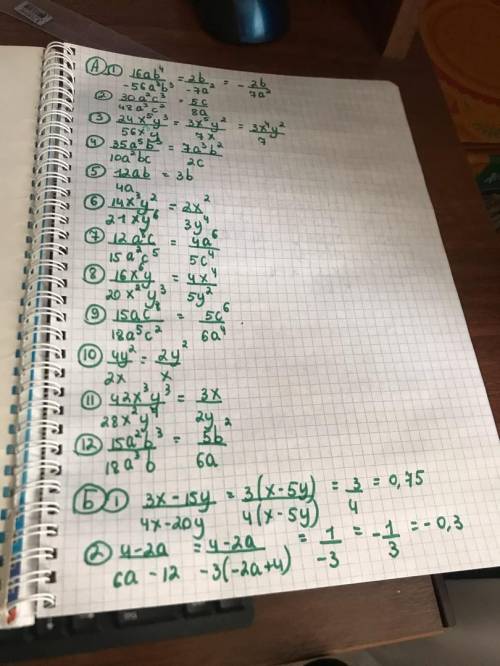 А 1 16ab⁴/-56a³b³ = 2b/-7a² = -2b/7a²
2 30a²c³/48a³c² = 5c/8a
3 24x⁵y³/56xy = 3x⁵y²/7x = 3x⁴y²/7
4 35a⁵b³/10a²bc = 7a³b²/2c
5 12ab/4a = 3b
6 14x³y²/21xy⁶ = 2x²/3y⁴
7 12a⁸c/15a²c⁵ = 4a⁶/5c⁴
8 16x⁶y/20x²y³ = 4x⁴/5y²
9 15ac⁸/18a⁵c² = 5c⁶/6a⁴
10 4y²/2x = 2y²/x
11 42x³y³/28x²y⁴ = 3x/2y
12 15a²b³/18a³b = 5b²/6a
Б 1 3x-15y/4x-20y = 3(x-5y)/4(x-5y) = 3/4 = 0,75
2 4-2a/6a-12 = 4-2a/-3(-2a+4) = 1/-3 = -1/3 = -0,3